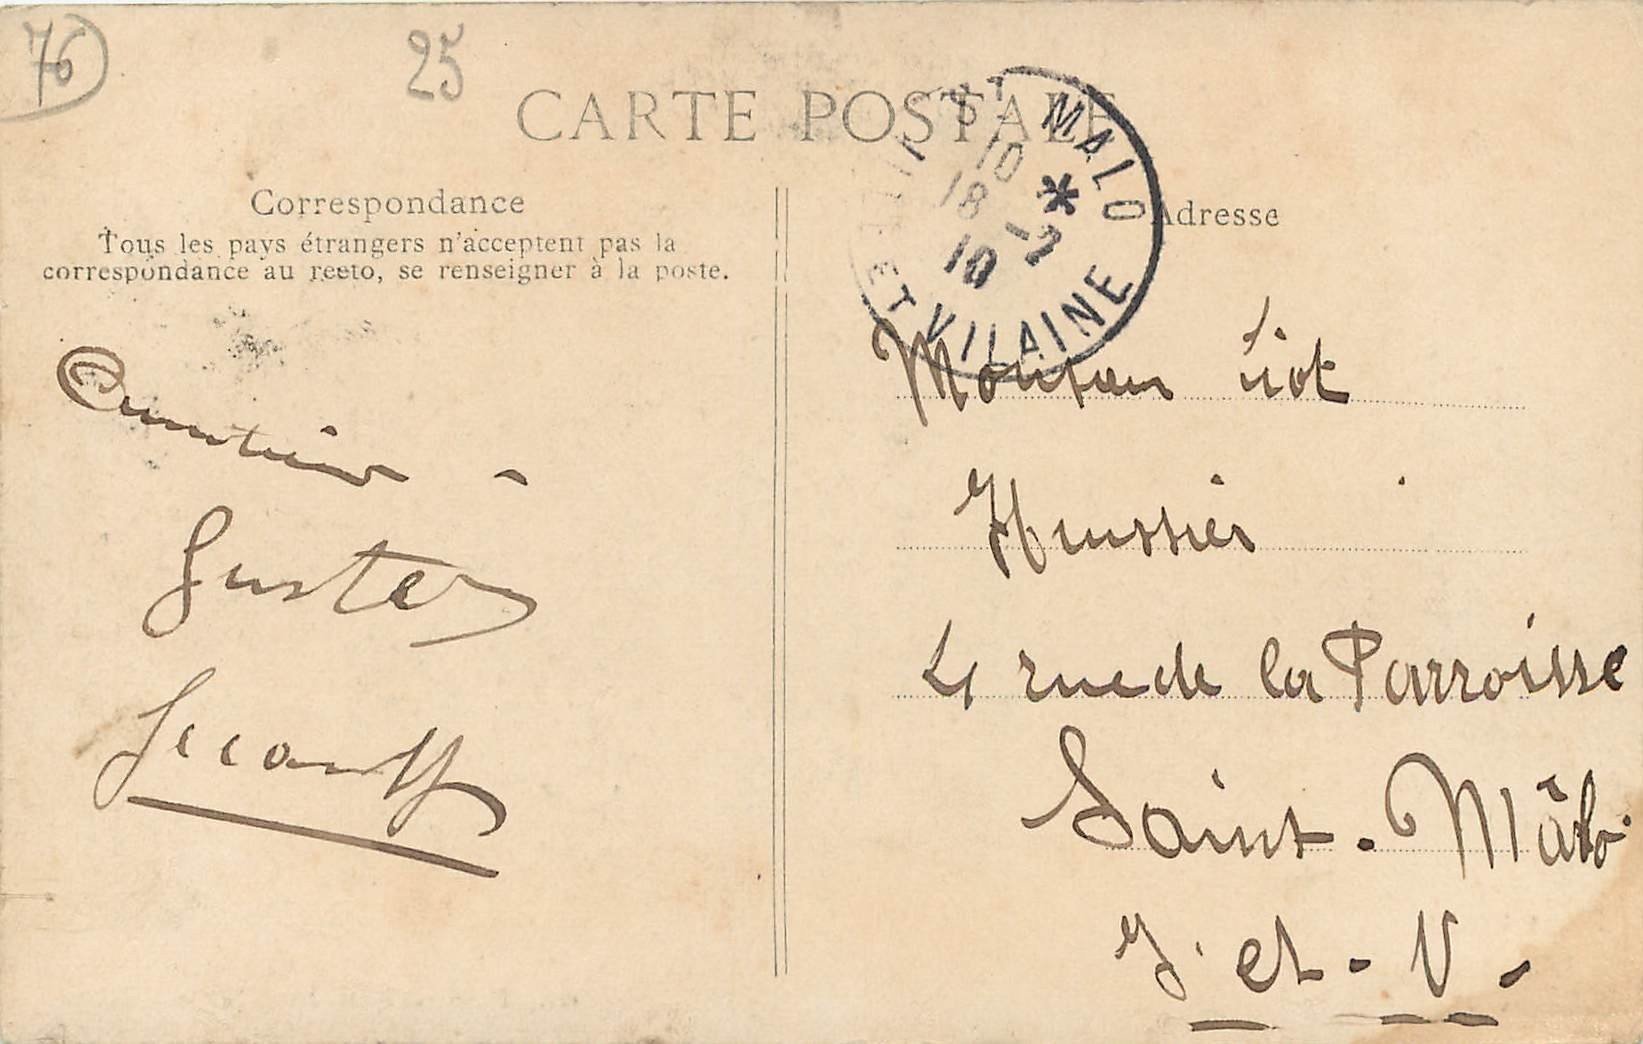 76
25
CARTE POSTALE
ST MALO
ET VILAINE
10
18 - 7
10
Correspondance
Tous les pays étrangers n'acceptent pas la
correspondance au recto, se renseigner à la poste.
Adresse
Monsieur Liot
Huissier
4 rue de la Parroisse
Saint-Mâlo
I. et-V-